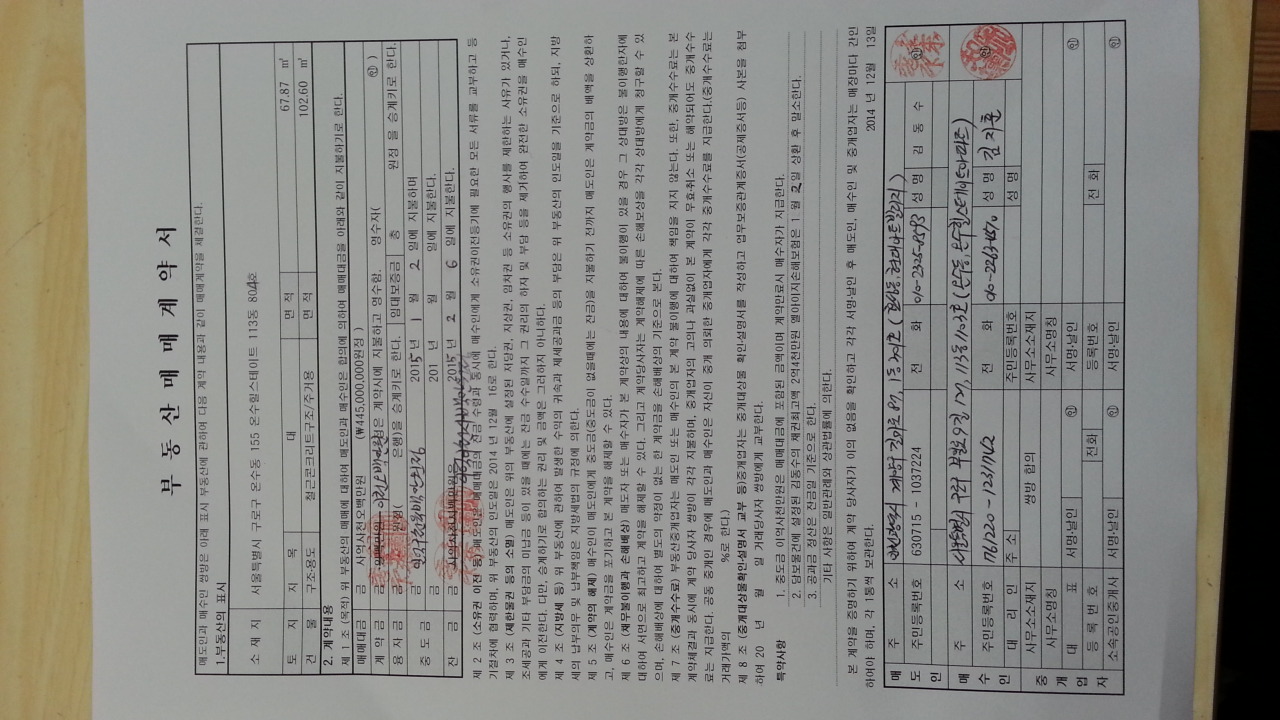 부 동 산 매 매 계 약 서
매도인과 매수인 쌍방은 아래 표시 부동산에 관하여 다음 계약 내용과 같이 매매계약을 체결한다.
1.부동산의 표시
소 재 지 서울특별시 구로구 온수동 155 온수힐스테이트 113동 804호
토 지 지 목 대 면 적 67.87 ㎡
건 물 구조·용도 철근콘크리트구조/주거용 면 적 102.60 ㎡
2. 계약내용
제 1 조 (목적) 위 부동산의 매매에 대하여 매도인과 매수인은 합의에 의하여 매매대금을 아래와 같이 지불하기로 한다.
매매대금 금 사억사천오백만원 (₩445,000,000원정 )
계 약 금 금 은 계약시에 지불하고 영수함. 영수자( ㊞ )
융 자 금 금 원정( 은행)을 승계키로 한다. 임대보증금 총 원정 을 승계키로 한다.
중 도 금 금 2015 년 1 월 2 일에 지불하며
201 년 월 일에 지불한다.
잔 금 금 2015 년 2 월 6 일에 지불한다.
제 2 조 (소유권 이전 등) 매도인은 매매대금의 잔금 수령과 동시에 매수인에게 소유권이전등기에 필요한 모든 서류를 교부하고 등
기절차에 협력하며, 위 부동산의 인도일은 2014 년 12월 16로 한다.
제 3 조 (제한물권 등의 소멸) 매도인은 위의 부동산에 설정된 저당권, 지상권, 임차권 등 소유권의 행사를 제한하는 사유가 있거나,
조세공과 기타 부담금의 미납금 등이 있을 때에는 잔금 수수일까지 그 권리의 하자 및 부담 등을 제거하여 완전한 소유권을 매수인
에게 이전한다. 다만, 승계하기로 합의하는 권리 및 금액은 그러하지 아니하다.
제 4 조 (지방세 등) 위 부동산에 관하여 발생한 수익의 귀속과 제세공과금 등의 부담은 위 부동산의 인도일을 기준으로 하되, 지방
세의 납부의무 및 납부책임은 지방세법의 규정에 의한다.
제 5 조 (계약의 해제) 매수인이 매도인에게 중도금(중도금이 없을때에는 잔금)을 지불하기 전까지 매도인은 계약금의 배액을 상환하
고, 매수인은 계약금을 포기하고 본 계약을 해제할 수 있다.
제 6 조 (채무불이행과 손해배상) 매도자 또는 매수자가 본 계약상의 내용에 대하여 불이행이 있을 경우 그 상대방은 불이행한자에
대하여 서면으로 최고하고 계약을 해제할 수 있다. 그리고 계약당사자는 계약해제에 따른 손해보상을 각각 상대방에게 청구할 수 있
으며, 손해배상에 대하여 별도의 약정이 없는 한 계약금을 손해배상의 기준으로 본다.
제 7 조 (중개수수료) 부동산중개업자는 매도인 또는 매수인의 본 계약 불이행에 대하여 책임을 지지 않는다. 또한, 중개수수료는 본
계약체결과 동시에 계약 당사자 쌍방이 각각 지불하며, 중개업자의 고의나 과실없이 본 계약이 무효·취소 또는 해약되어도 중개수수
료는 지급한다. 공동 중개인 경우에 매도인과 매수인은 자신이 중개 의뢰한 중개업자에게 각각 중개수수료를 지급한다.(중개수수료는
거래가액의 %로 한다.)
제 8 조 (중개대상물확인·설명서 교부 등)중개업자는 중개대상물 확인설명서를 작성하고 업무보증관계증서(공제증서등) 사본을 첨부
하여 20 년 월 일 거래당사자 쌍방에게 교부한다.
특약사항
1. 중도금 이억사천만원은 매매대금에 포함된 금액이며 계약만료시 매수자가 지급한다.
2. 담보물건에 설정된 김동수의 채권최고액 2억4천만원 엘아이지손해보험은 1 월 2 일 상환 후 말소한다.
3. 공과금 정산은 잔금일 기준으로 한다.
기타 사항은 일반관례와 상관법률에 의한다.
본 계약을 증명하기 위하여 계약 당사자가 이의 없음을 확인하고 각각 서명·날인 후 매도인, 매수인 및 중개업자는 매장마다 간인
하여야 하며, 각 1통씩 보관한다. 2014 년 12월 13일
매도인 주 소
주민등록번호 630715 - 1037224 전 화 성 명 김 동 수 ㊞
매수인 주 소
주민등록번호 761220 - 1231702 전 화 성 명 김지훈 ㊞
대 리 인 주 소 주민등록번호 성 명
중개업자 사무소소재지 쌍방 합의 사무소소재지
사무소명칭 사무소명칭
대 표 서명·날인 ㊞ 서명·날인 ㊞
등 록 번 호 전화 등록번호 전 화
소속공인중개사 서명·날인 ㊞ 서명·날인 ㊞